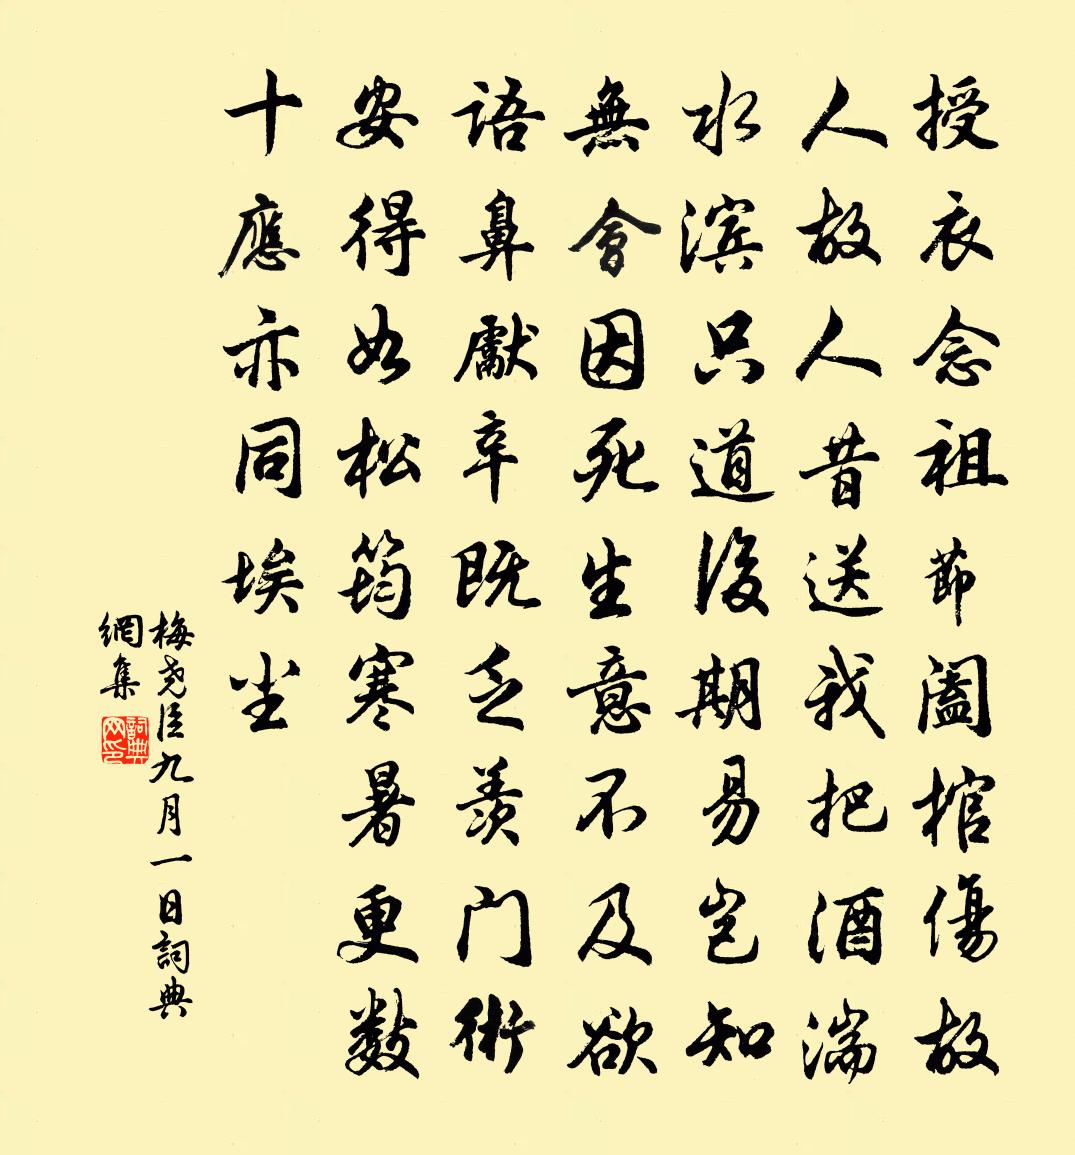 授衣念祖節闔棺傷故
人故人昔送我把酒湍
水滨只道後期易豈知
無會因死生意不及欲
語鼻獻辛既乏羨门術
安得如松筠寒暑更数
十應亦同埃尘
梅尧臣九月一日詞典
網集
詞典
网印